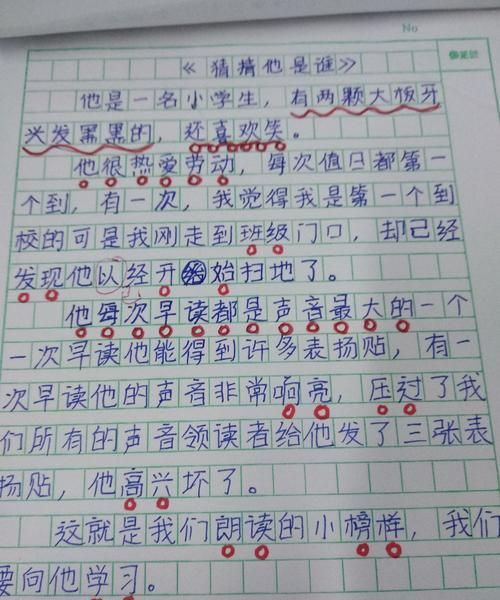 No
《猜猜他是谁》
他是一名小学生，有两颗大板牙
头发黑黑的，还喜欢笑。
他很热爱劳动，每次值日都第一
个到，有一次，我觉得我是第一个到
校的可是我刚走到班级门口，却己经
发现他以经开始扫地了。
他每次早读都是声音最大的一个
一次早读他能得到许多表扬贴，有一
次早读他的声音非常响亮，压过了我
们所有的声音领读者给他发了三张表
扬贴，他高兴坏了。
这就是我们朗读的小榜样，我们
要向他学习。